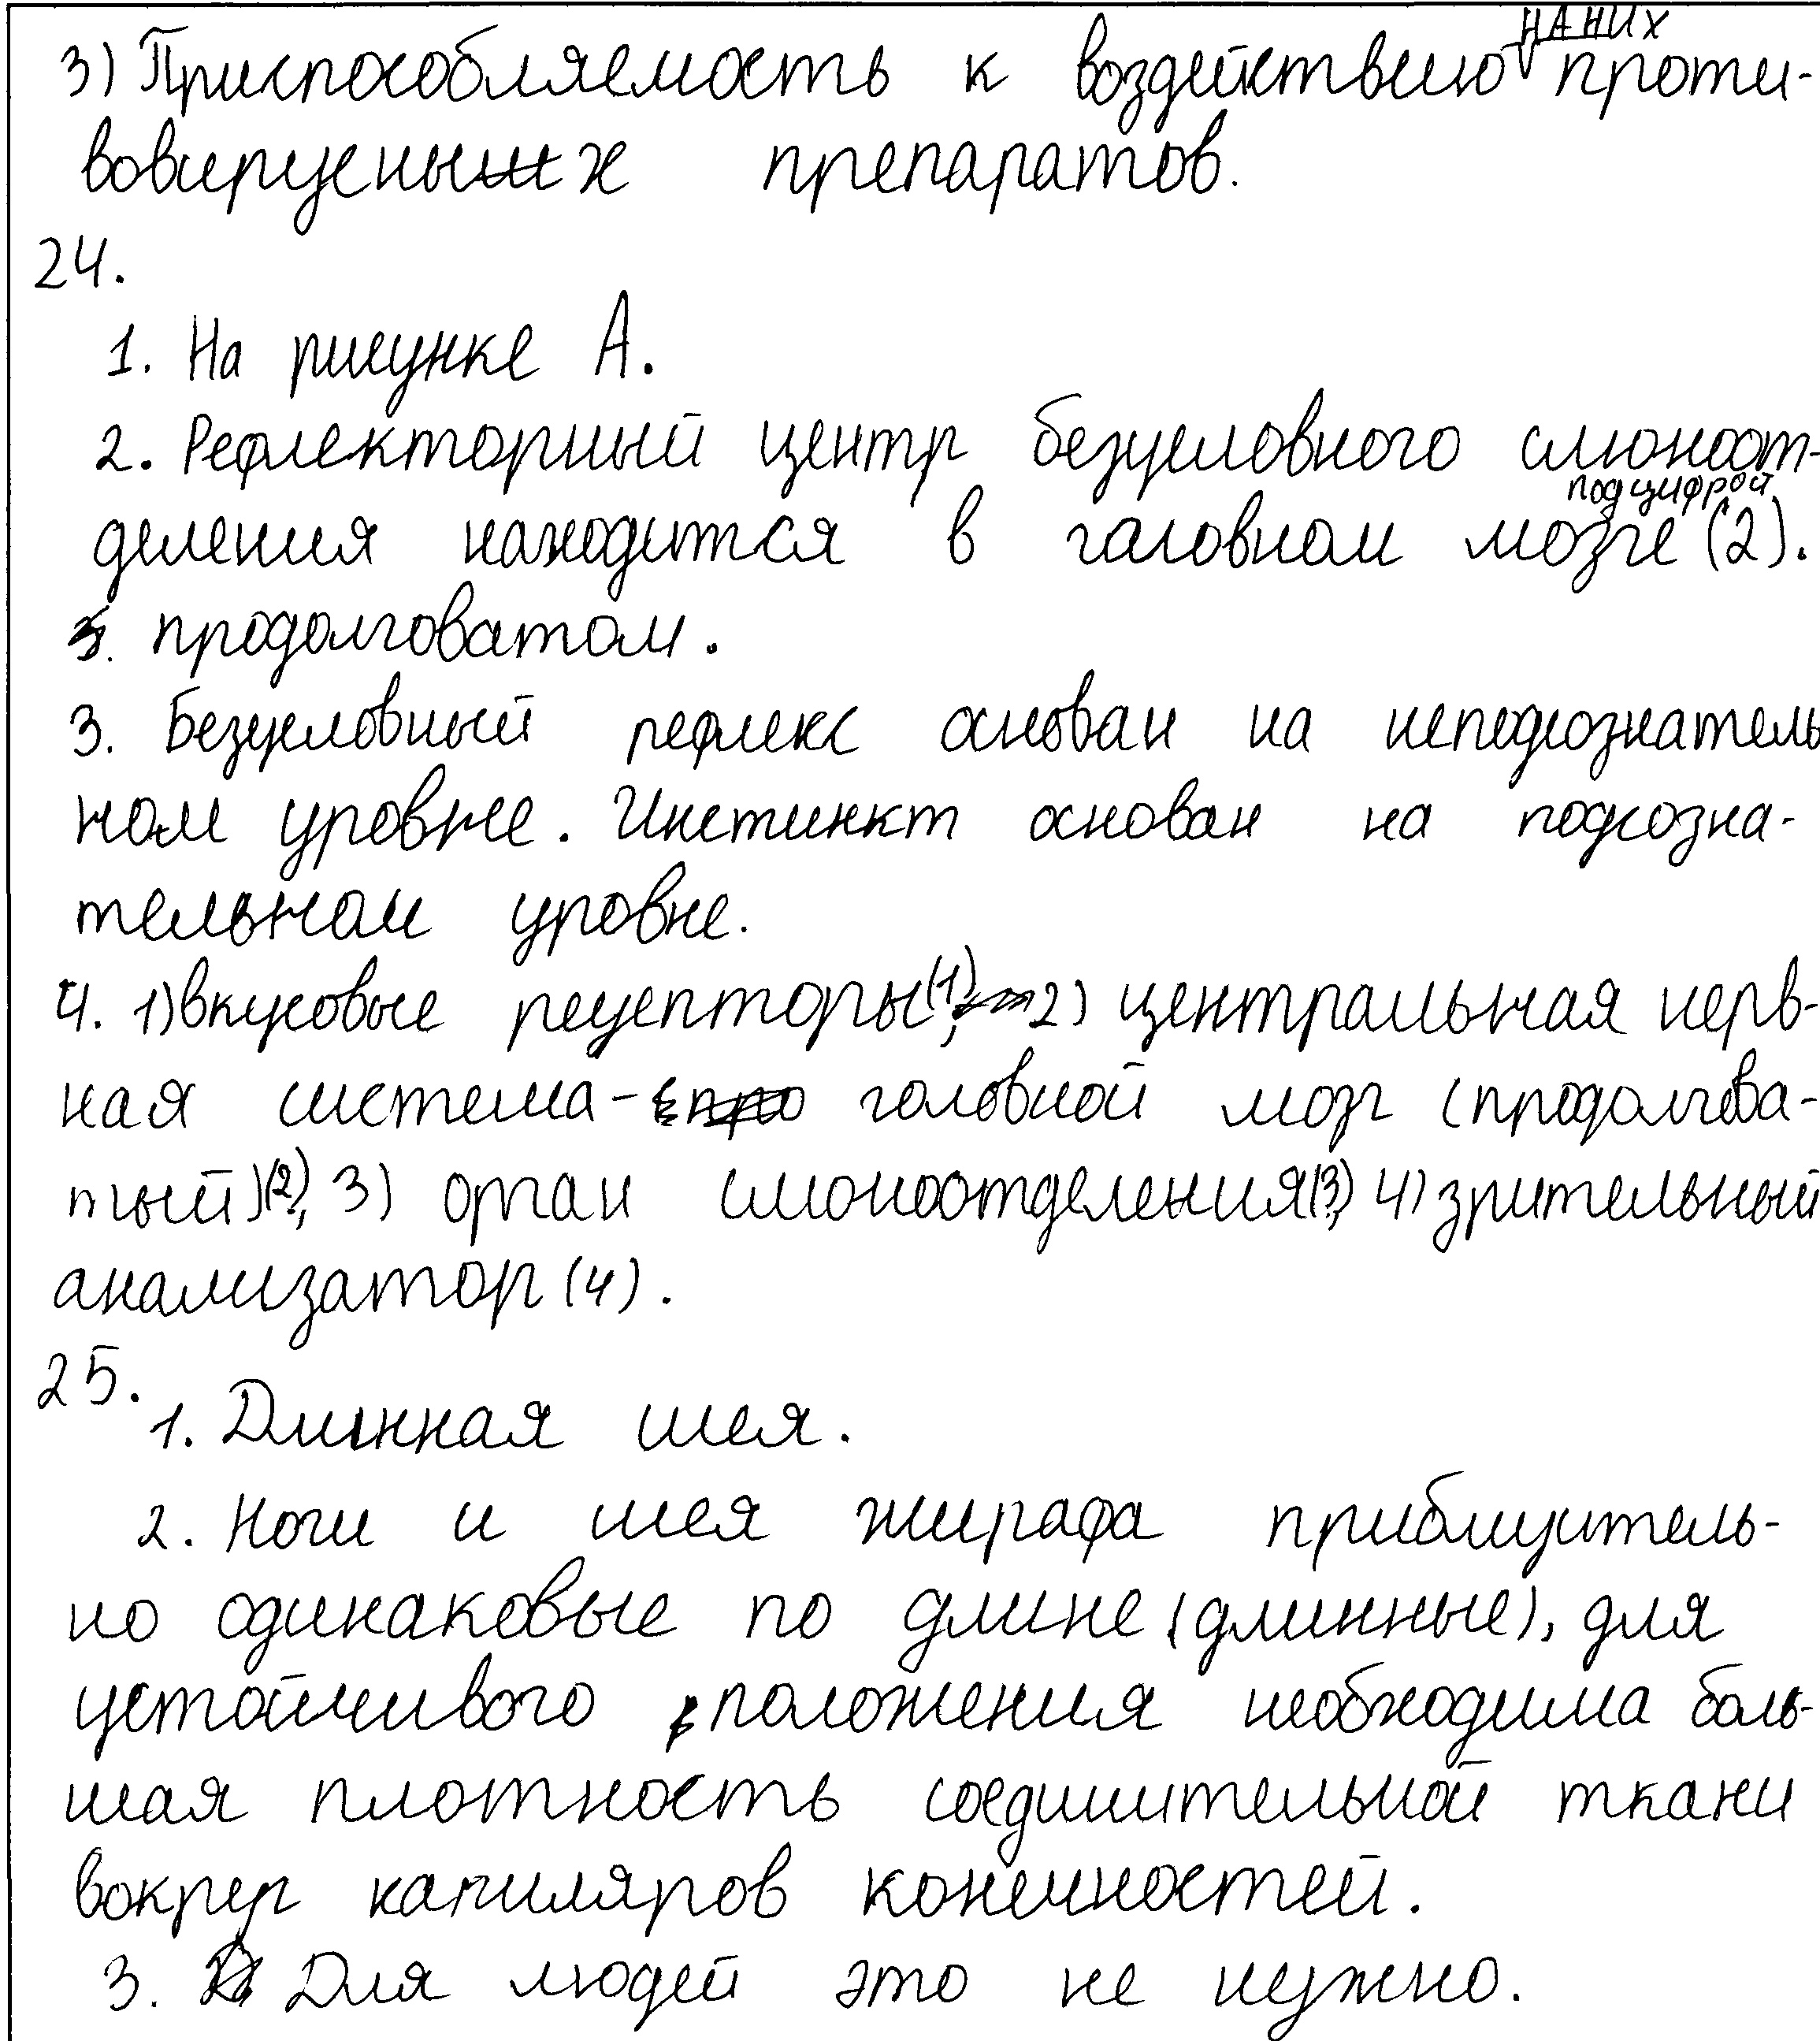 3) Приспособляемость к воздействию на них проти-
вовирусных препаратов.
24.
1. На рисунке А.
2. Рефлекторный центр безусловного слюноот-
деления находится в головном мозге под цифрой (2).
продолговатом.
3. Безусловный рефлекс основан на неподсознатель
ном уровне. Инстинкт основан на подсозна-
тельном уровне.
4. 1) вкусовые рецепторы (1), 2) центральная нерв-
ная система - головной мозг (продолгова-
тый) (2), 3) орган слюноотделения (3), 4) зрительный
анализатор (4).
25.
1. Длинная шея.
2. Ноги и шея жирафа приблизитель-
но одинаковые по длине (длинные), для
устойчивого положения необходима боль-
шая плотность соединительной ткани
вокруг капиляров конечностей.
3. Для людей это не нужно.